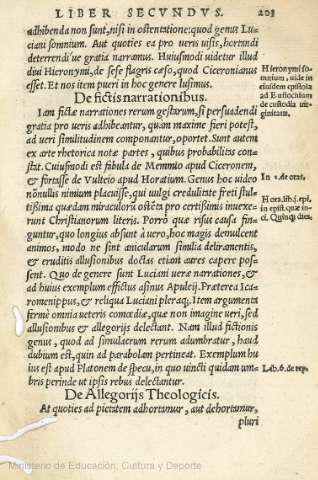 LIBER SECVNDVS. 203
adhibenda non sunt, nisi in ostentatione: quod genus Lu-
ciani somnium. Aut quoties ea pro ueris uisis, hortandi
deterrendi'ue gratia narramus. Huiusmodi uidetur illud
diui Hieronymi, de sese flagris cæso, quod Ciceronianus
esset. Et nos item pueri in hoc genere lusimus.
Hieronymi so-
mnium, uide in
eiusdem epistola
ad Eustochium
de custodia uir-
ginitatis.
De fictis narrationibus.
Iam fictæ narrationes rerum gestarum, si persuadendi
gratia pro ueris adhibeantur, quam maxime fieri potest,
ad ueri similitudinem componantur, oportet. Sunt autem
ex arte rhetorica notæ partes, quibus probabilitas con-
stat. Cuiusmodi est fabula de Memmio apud Ciceronem,
& fortasse de Vulteio apud Horatium. Genus hoc uideo
nõnullis nimium placuisse, qui uulgi credulitate freti stul-
tissima quædam miraculorũ ostẽta pro certissimis inuexe-
runt Christianorum literis. Porrò quæ risus causa fin-
guntur, quo longius absunt à uero, hoc magis demulcent
animos, modo ne sint anicularum similia deliramentis,
& eruditis allusionibus doctas etiam aures capere pos-
sent. Quo de genere sunt Luciani ueræ narrationes, &
ad huius exemplum effictus asinus Apuleij. Præterea Ica-
romenippus, & reliqua Luciani pleraq;. Item argumenta
fermè omnia ueteris comœdiæ, quæ non imagine ueri, sed
allusionibus & allegorijs delectant. Nam illud fictionis
genus, quod ad simulacrum rerum adumbratur, haud
dubium est, quin ad parabolam pertineat. Exemplum hu
ius est apud Platonem de specu, in quo uincti quidam um-
bris perinde ut ipsis rebus delectantur.
In 2. de orat.
Hora. lib. 1. epi.
in epist. quæ in-
ci. Quinq; dies.
Lib. 6. de rep.
De Allegorijs Theologicis.
At quoties ad pietatem adhortamur, aut dehortamur,
pluri
Ministerio de Educación, Cultura y Deporte